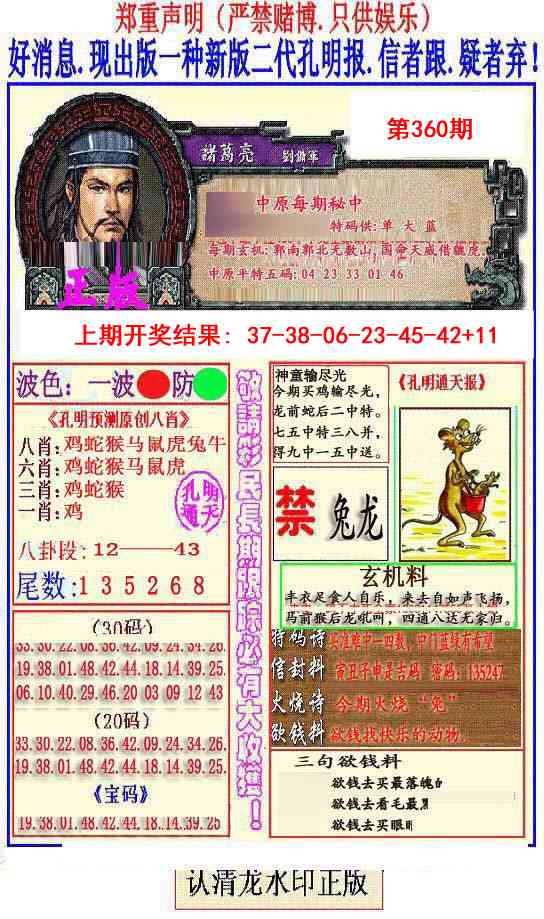 郑重声明（严禁赌博.只供娱乐）
好消息.现出版一种新版二代孔明报.信者跟.疑者弃！
第360期
諸葛亮
中原每期秘中
特码供:单 大 蓝
每期玄机:郭南郭北无数山,国命天威借魏虎.
中原平特五码:04 23 33 01 46
正版
上期开奖结果: 37-38-06-23-45-42+11
波色：一波 防
《孔明预测原创八肖》
八肖:鸡蛇猴马鼠虎兔牛
六肖:鸡蛇猴马鼠虎
三肖:鸡蛇猴
一肖:鸡
孔明
通天
八卦段:12——43
尾数:135268
(30码)
33.30.22.08.36.42.09.24.34.26
19.38.01.48.42.44.18.14.39.25
06.10.40.29.46.20 03 09 12 43
(20码)
33.30.22.08.16.42.09.24.34.26.
19.38.01.48.42.44.18.14.39.25.
《宝码》
19.38.01.48.42.44.18.14.39.25
敬請彩民長期跟踪必有大收獲！
神童输尽光
今期买鸡输尽光，
龙前蛇后二中特。
七五中特三八并，
得九中一五中送。
《孔明通天报》
禁 兔龙
玄机料
丰衣足食人自乐，来去自如声飞扬，
马前猴后龙吼叫，四通八达无家归。
特码诗
信封料 寅丑子申是吉码 密码:135247
火烧诗 今期火烧“兔”
欲钱料 欲钱找快乐的动物.
三句欲钱料
欲钱去买最落魄的
欲钱去看毛最
欲钱去买眼
认清龙水印正版